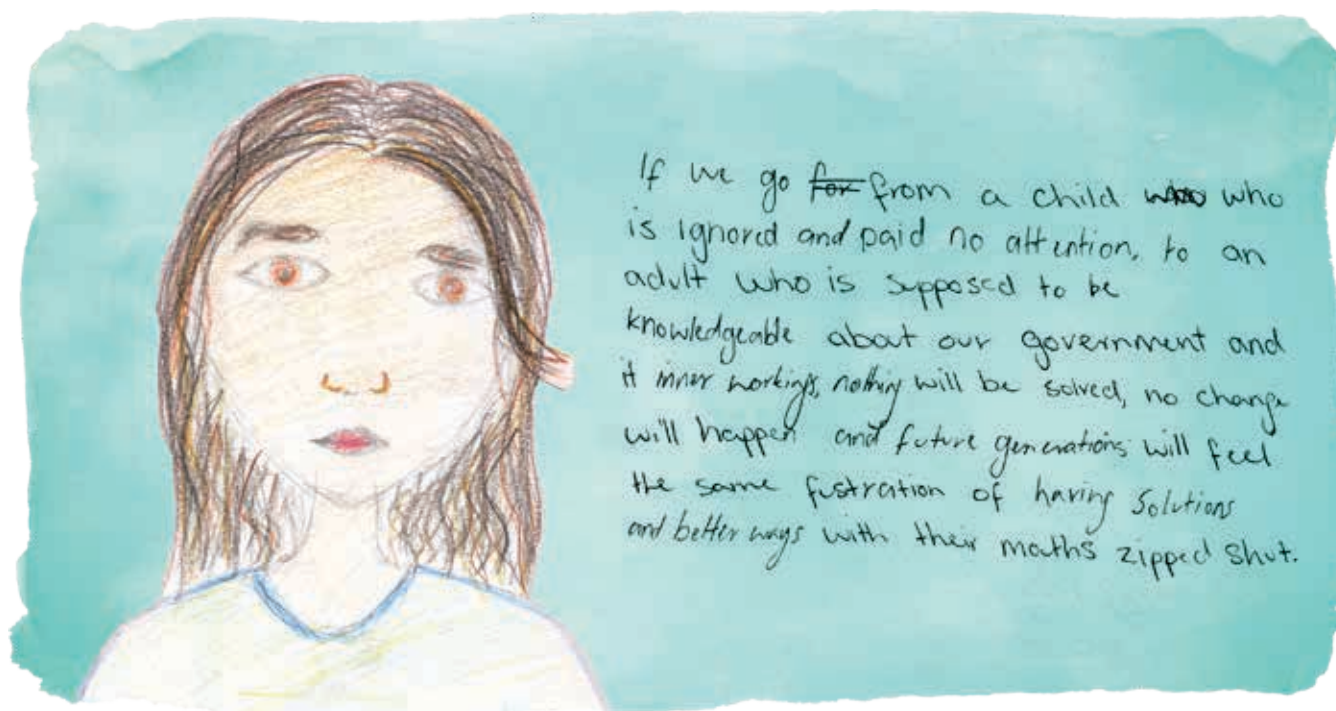 If we go for from a child who who
is ignored and paid no attention, to an
adult who is supposed to be
knowledgeable about our government and
it inner workings, nothing will be solved, no change
will happen and future generations will feel
the same fustration of having solutions
and better ways with their mouths zipped shut.